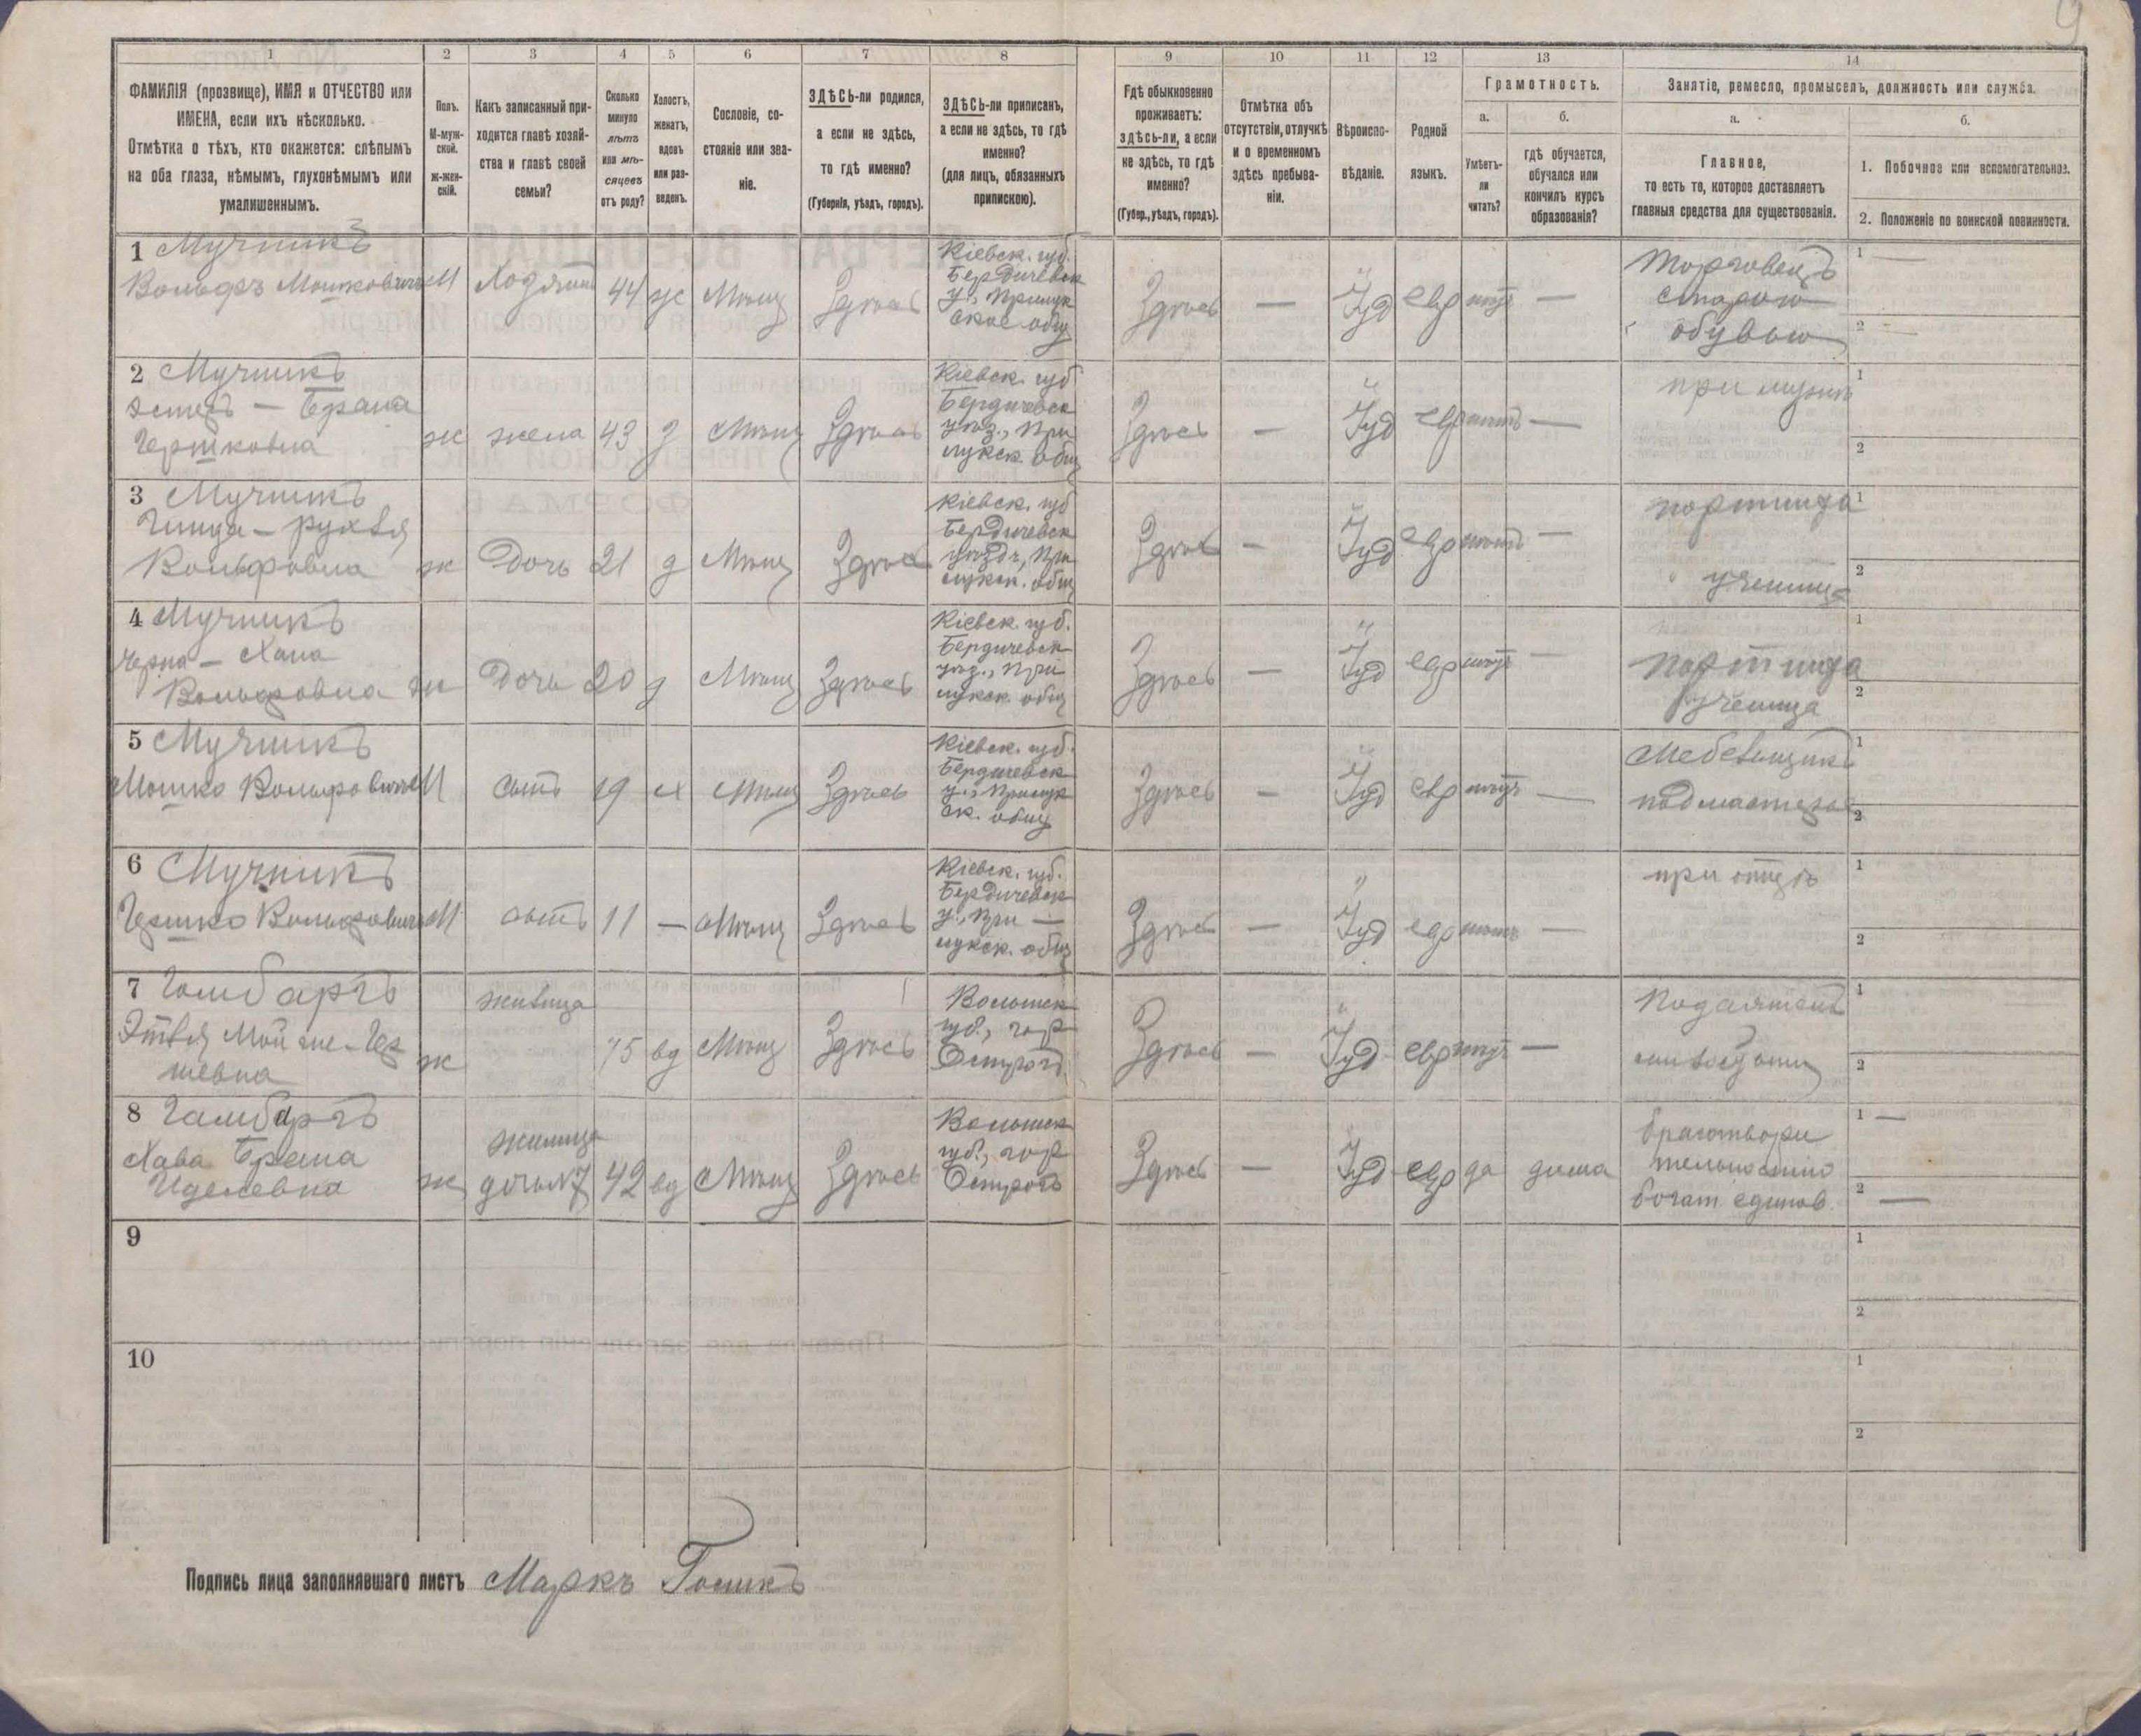 9
1
2
3
4
5
6
7
8
9
10
11
12
13
14
ФАМИЛІЯ (прозвище), ИМЯ и ОТЧЕСТВО или
ИМЕНА, если ихъ нѣсколько.
Отмѣтка о тѣхъ, кто окажется: слѣпымъ
на оба глаза, нѣмымъ, глухонѣмымъ или
умалишеннымъ.
Полъ.
М-муж-
ской.
ж-жен-
скій.
Какъ записанный при-
ходится главѣ хозяй-
ства и главѣ своей
семьи?
Сколько
минуло
лѣтъ
или мѣ-
сяцевъ
отъ роду?
Холостъ,
женатъ,
вдовъ
или раз-
веденъ.
Сословіе, со-
стояніе или зва-
ніе.
ЗДѢСЬ-ли родился,
а если не здѣсь,
то гдѣ именно?
(Губернія, уѣздъ, городъ).
ЗДѢСЬ-ли приписанъ,
а если не здѣсь, то гдѣ
именно?
(для лицъ, обязанныхъ
припискою).
Гдѣ обыкновенно
проживаетъ:
здѣсь-ли, а если
не здѣсь, то гдѣ
именно?
(Губер., уѣздъ, городъ).
Отмѣтка объ
отсутствіи, отлучкѣ
и о временномъ
здѣсь пребыва-
ніи.
Вѣроиспо-
вѣданіе.
Родной
языкъ.
Грамотность.
а.
Умѣетъ-
ли
читать?
б.
гдѣ обучается,
обучался или
кончилъ курсъ
образованія?
Занятіе, ремесло, промыселъ, должность или служба.
а.
Главное,
то есть то, которое доставляетъ
главныя средства для существованія.
б.
1. Побочное или вспомогательное.
2. Положеніе по воинской повинности.
1 Мучникъ
Вольфъ Мошковичъ М Хозяинъ 44 ж Мѣщ Здѣсь
Кіевск. губ.
Бердичевск
у., Прилук
ское общ
Здѣсь — Іуд евр нѣтъ —
Торговецъ
старой
обувью
1 —
2 —
2 Мучникъ
Эстеръ — Брана
Гершковна ж жена 43 з Мѣщ Здѣсь
Кіевск. губ
Бердичевск
уѣз., При
лукск. общ
Здѣсь — Іуд евр нѣтъ —
при мужѣ
1
2
3 Мучникъ
Рухля
Вольфовна ж Дочь 21 д Мѣщ Здѣсь
Кіевск. губ
Бердичевск
уѣздъ, При
лукск. общ
Здѣсь — Іуд евр нѣтъ —
портниха
ученица
1
2
4 Мучникъ
Черна — Хана
Вольфовна ж Дочь 20 д Мѣщ Здѣсь
Кіевск. губ.
Бердичевск
уѣз., При
лукск. общ
Здѣсь — Іуд евр нѣтъ —
Портниха
ученица
1
2
5 Мучникъ
Мошко Вольфовичъ М сынъ 19 х Мѣщ Здѣсь
Кіевск. губ.
Бердичевск
у., Прилук
ск. общ
Здѣсь — Іуд евр нѣтъ —
Мебельщикъ
подмастерье
1
2
6 Мучникъ
Гершко Вольфовичъ М сынъ 11 — Мѣщ Здѣсь
Кіевск. губ.
Бердичевск
у., При —
лукск. общ
Здѣсь — Іуд евр нѣтъ —
при отцѣ
1
2
7
Этля Мойше-Гер
шевна ж жилица 75 вд Мѣщ Здѣсь
Волынск
губ., гор
Острогъ
Здѣсь — Іуд евр нѣтъ —
Подаяніемъ
милостыни
1
2
8
Хава Браna
Иделевна ж жилица
дочь №7 42 вд Мѣщ Здѣсь
Волынск
губ., гор
Острогъ
Здѣсь — Іуд евр да дома
благотвори
тельностію
богат. единов.
1 —
2 —
9
1
2
10
1
2
Подпись лица заполнявшаго листъ Маркъ